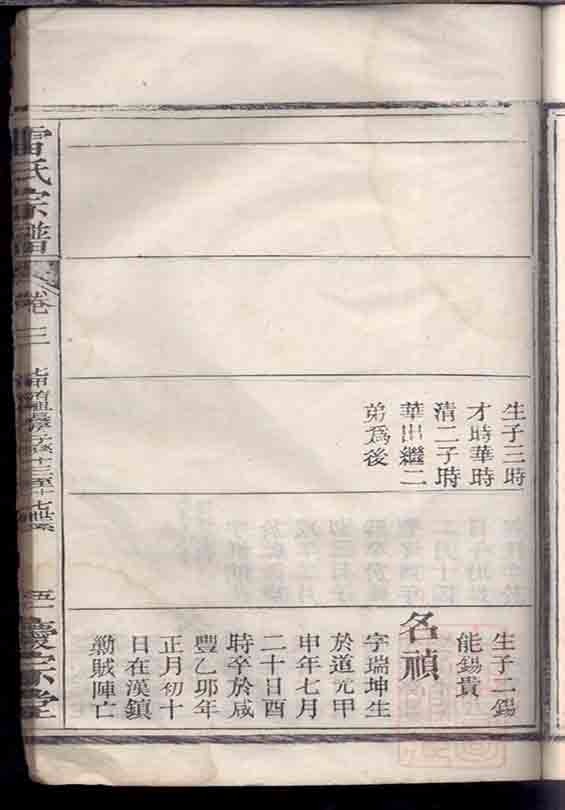 生子三時
才時華時
清二子時
華出繼二
弟為後
生子二錫
能錫貴
名禎
字瑞坤生
於道光甲
申年七月
二十日酉
時卒於咸
豐乙卯年
正月初十
日在漢鎮
勦賊陣亡
雷氏宗譜
卷三
慶宗堂